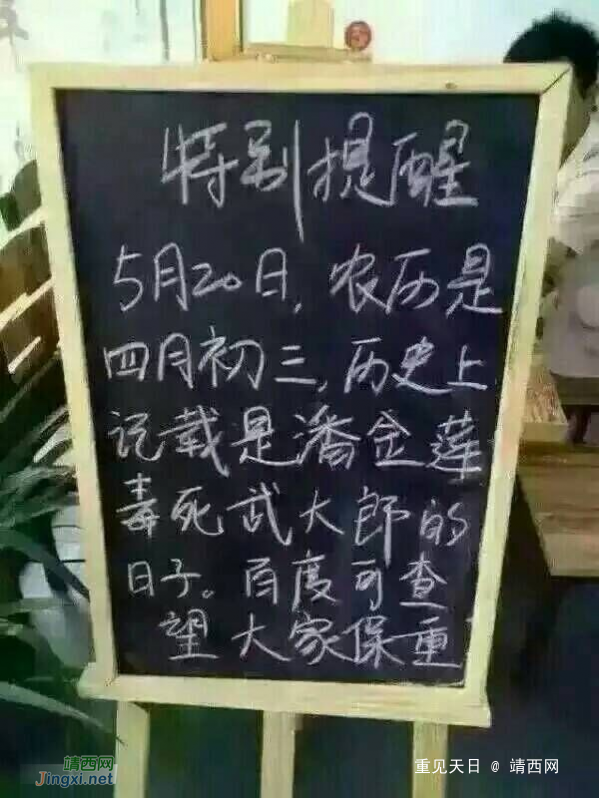 特别提醒
5月20日,农历是
四月初三,历史上
记载是潘金莲
毒死武大郎的
日子。百度可查
望大家保重
靖西网
Jingxi.net
重见天日 @ 靖西网